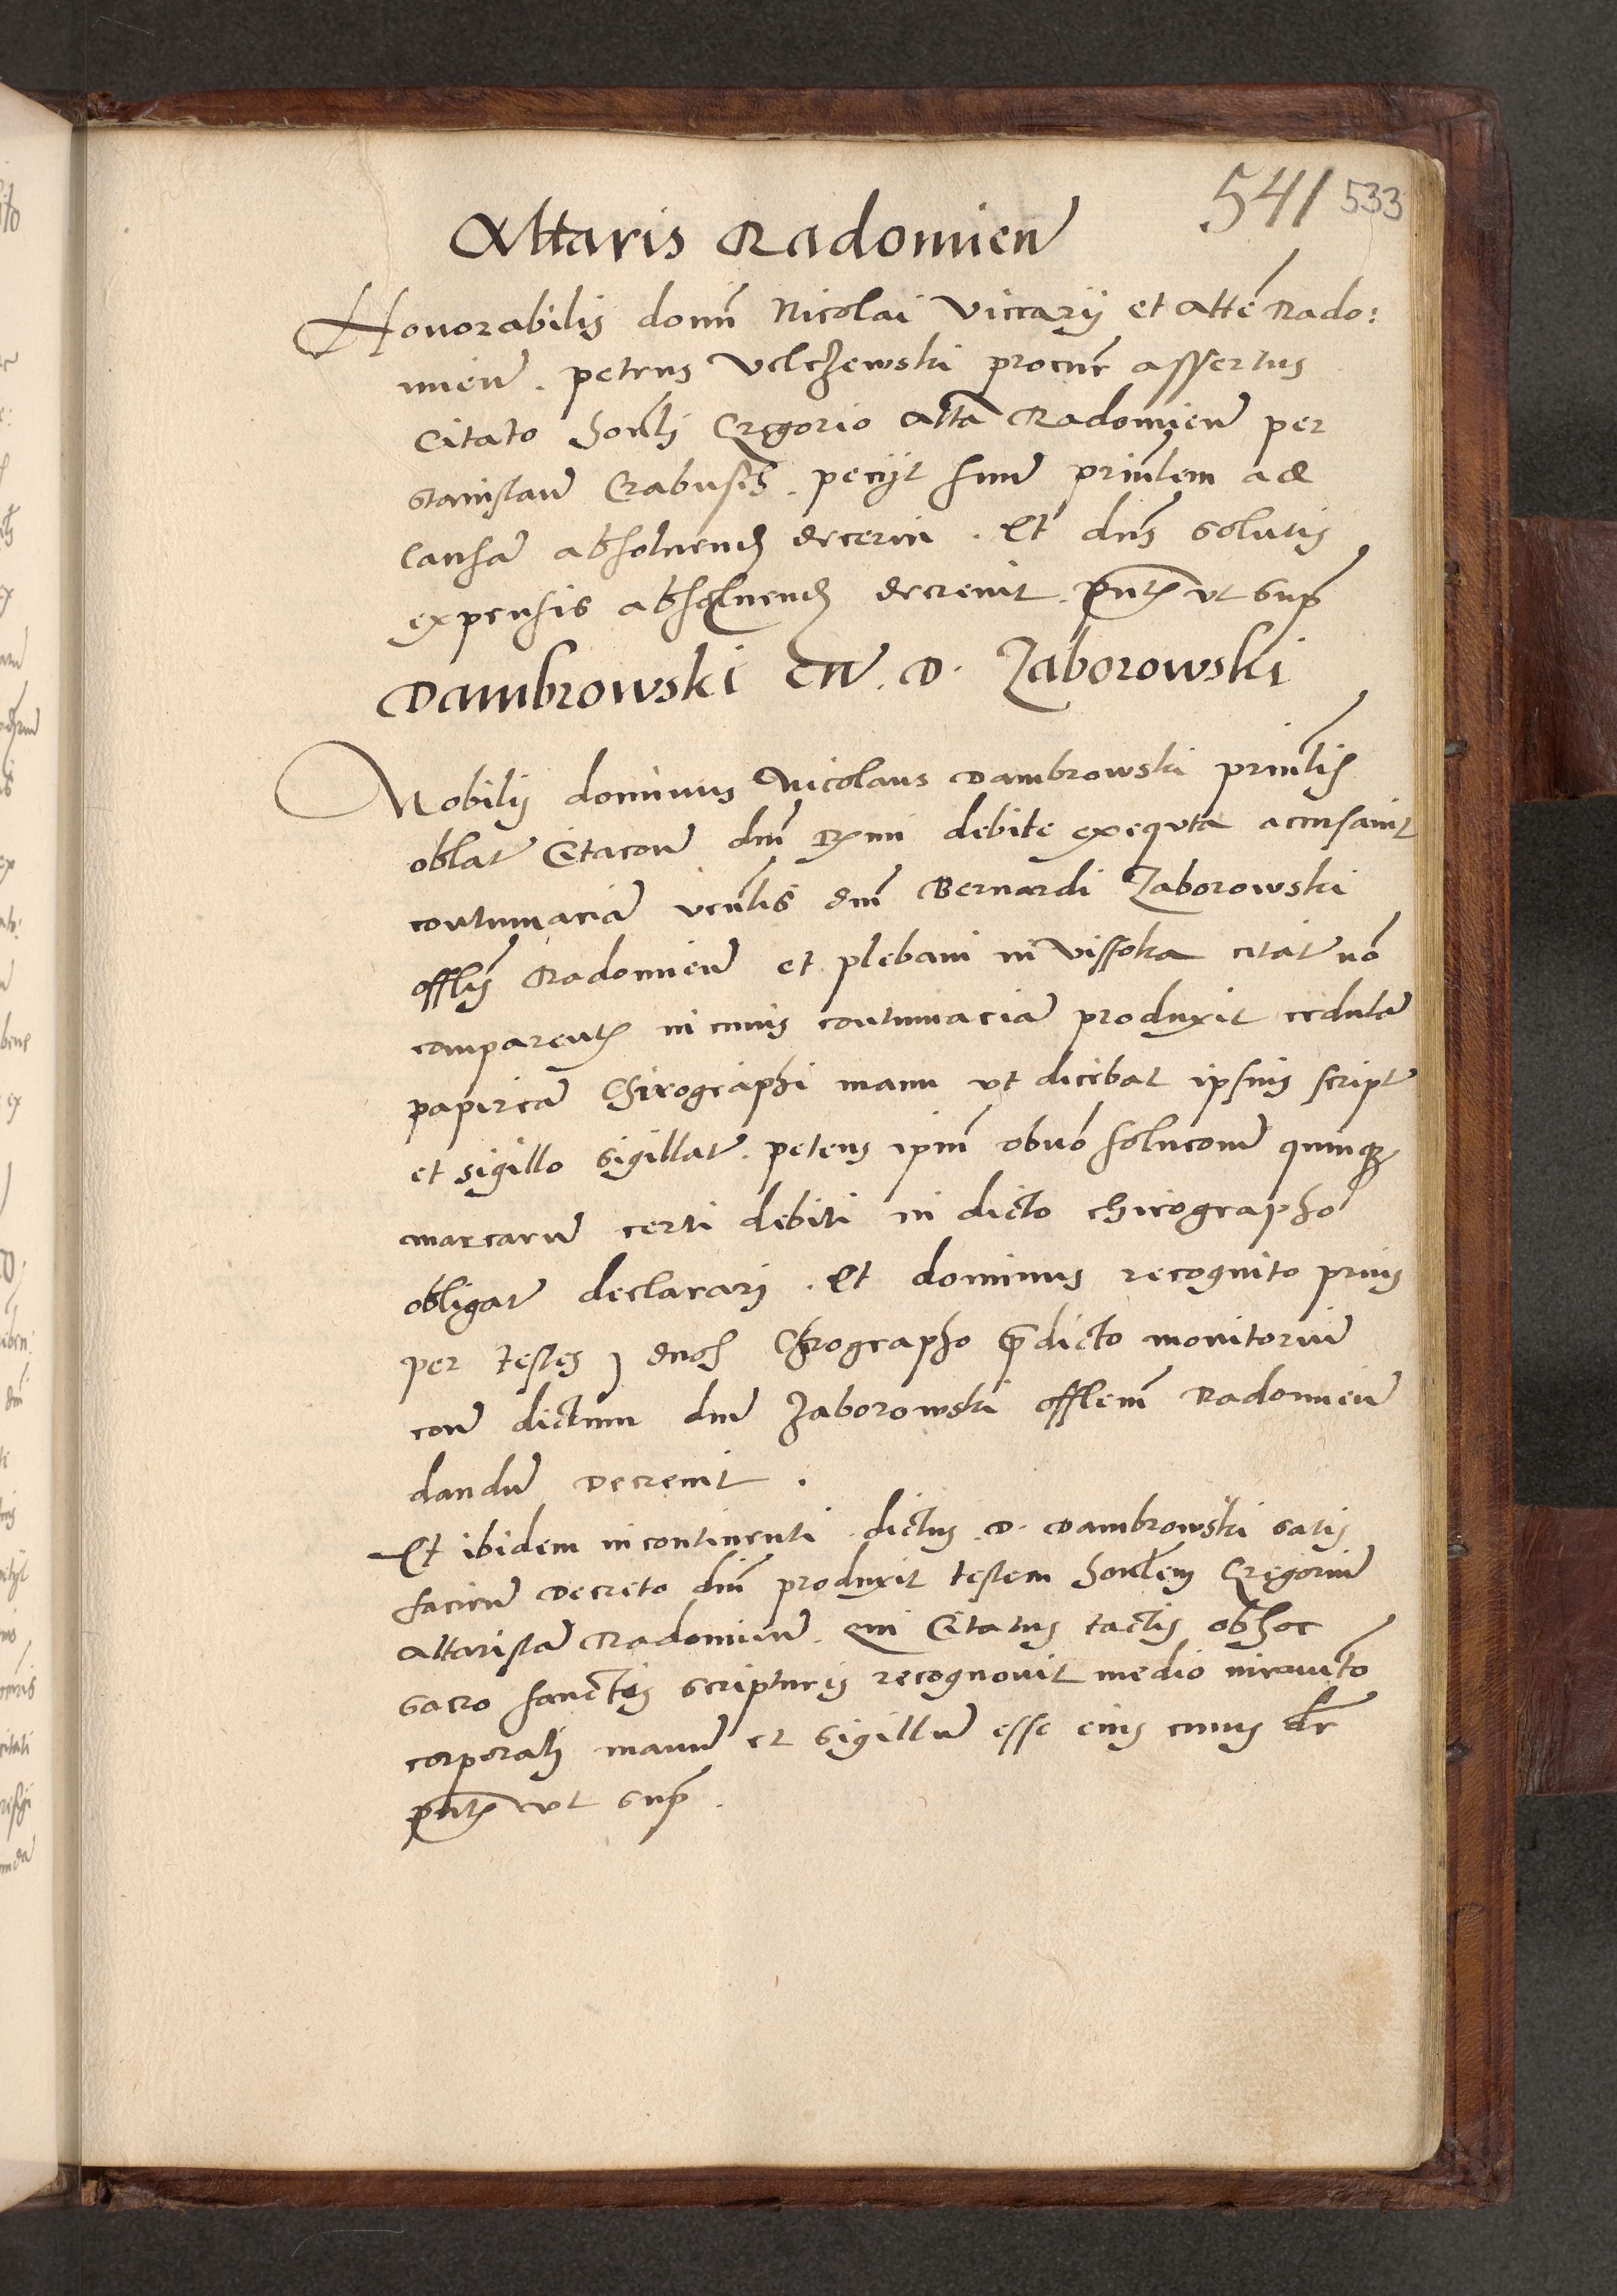 541 533
Altaris Radomien
Honorabilis domi Nicolai viccarij et Alte Rado:
mien. petrus Velczewski procur assertus
Citato honli Gregorio Alta Radomien per
Stanislaum petijt suum prinlem ad
causa absoluend decerni. Et dns solutis
expensis absoluend decreuit. pntes vt supra
Dambrowski cn. D. Zaborowski
Nobilis dominus Nicolaus Dambrowski prinlis
oblat Citacon dni Rmi debite exequta accusauit
contumacia venlis dni Bernardi Zaborowski
offlis Radomien et plebani in Vissoka citat no
comparents in cuius contumacia produxit cedulam
papirea Chirographi manu vt dicebat ipsius script
et sigillo sigillat. petens ipm solucone quinq
marcarum certi debiti in dicto chirographo
obligat declarari. Et dominus recognito prius
per testes duos Chrographo predicto monitorium
con dictum dnm Zaborowski offlem Radomien
dandum Decreuit.
Et ibidem incontinenti dictus D. Dambrowski satis
faciens Decreto dni produxit testem honlem Gregorium
altarista Radomien. qui Citatus tactis obhoc
sacro sanctis scripturis recognouit medio iuramto
corporali manum et sigillum esse eius cuius dr
pntes vt supra.